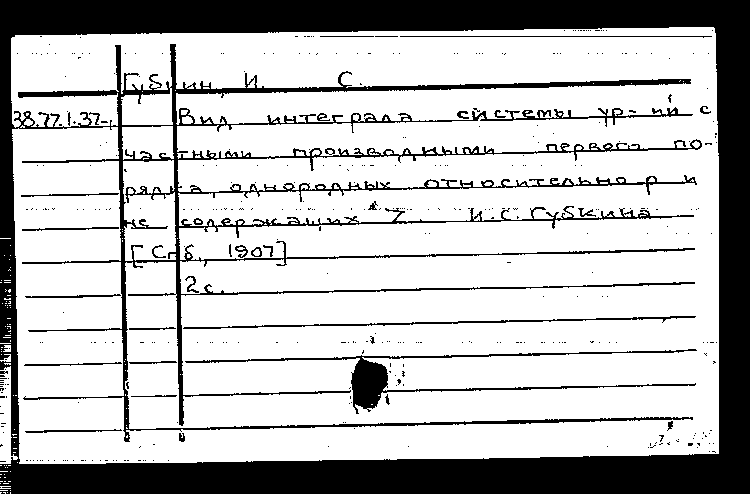 Губкин, И. С.
38.77.1.37
Вид интеграла системы ур-ний с
частными производными первого по-
рядка, однородных относительно p и
не содержащих Z. И.С. Губкина
[Спб., 1907]
2 с.